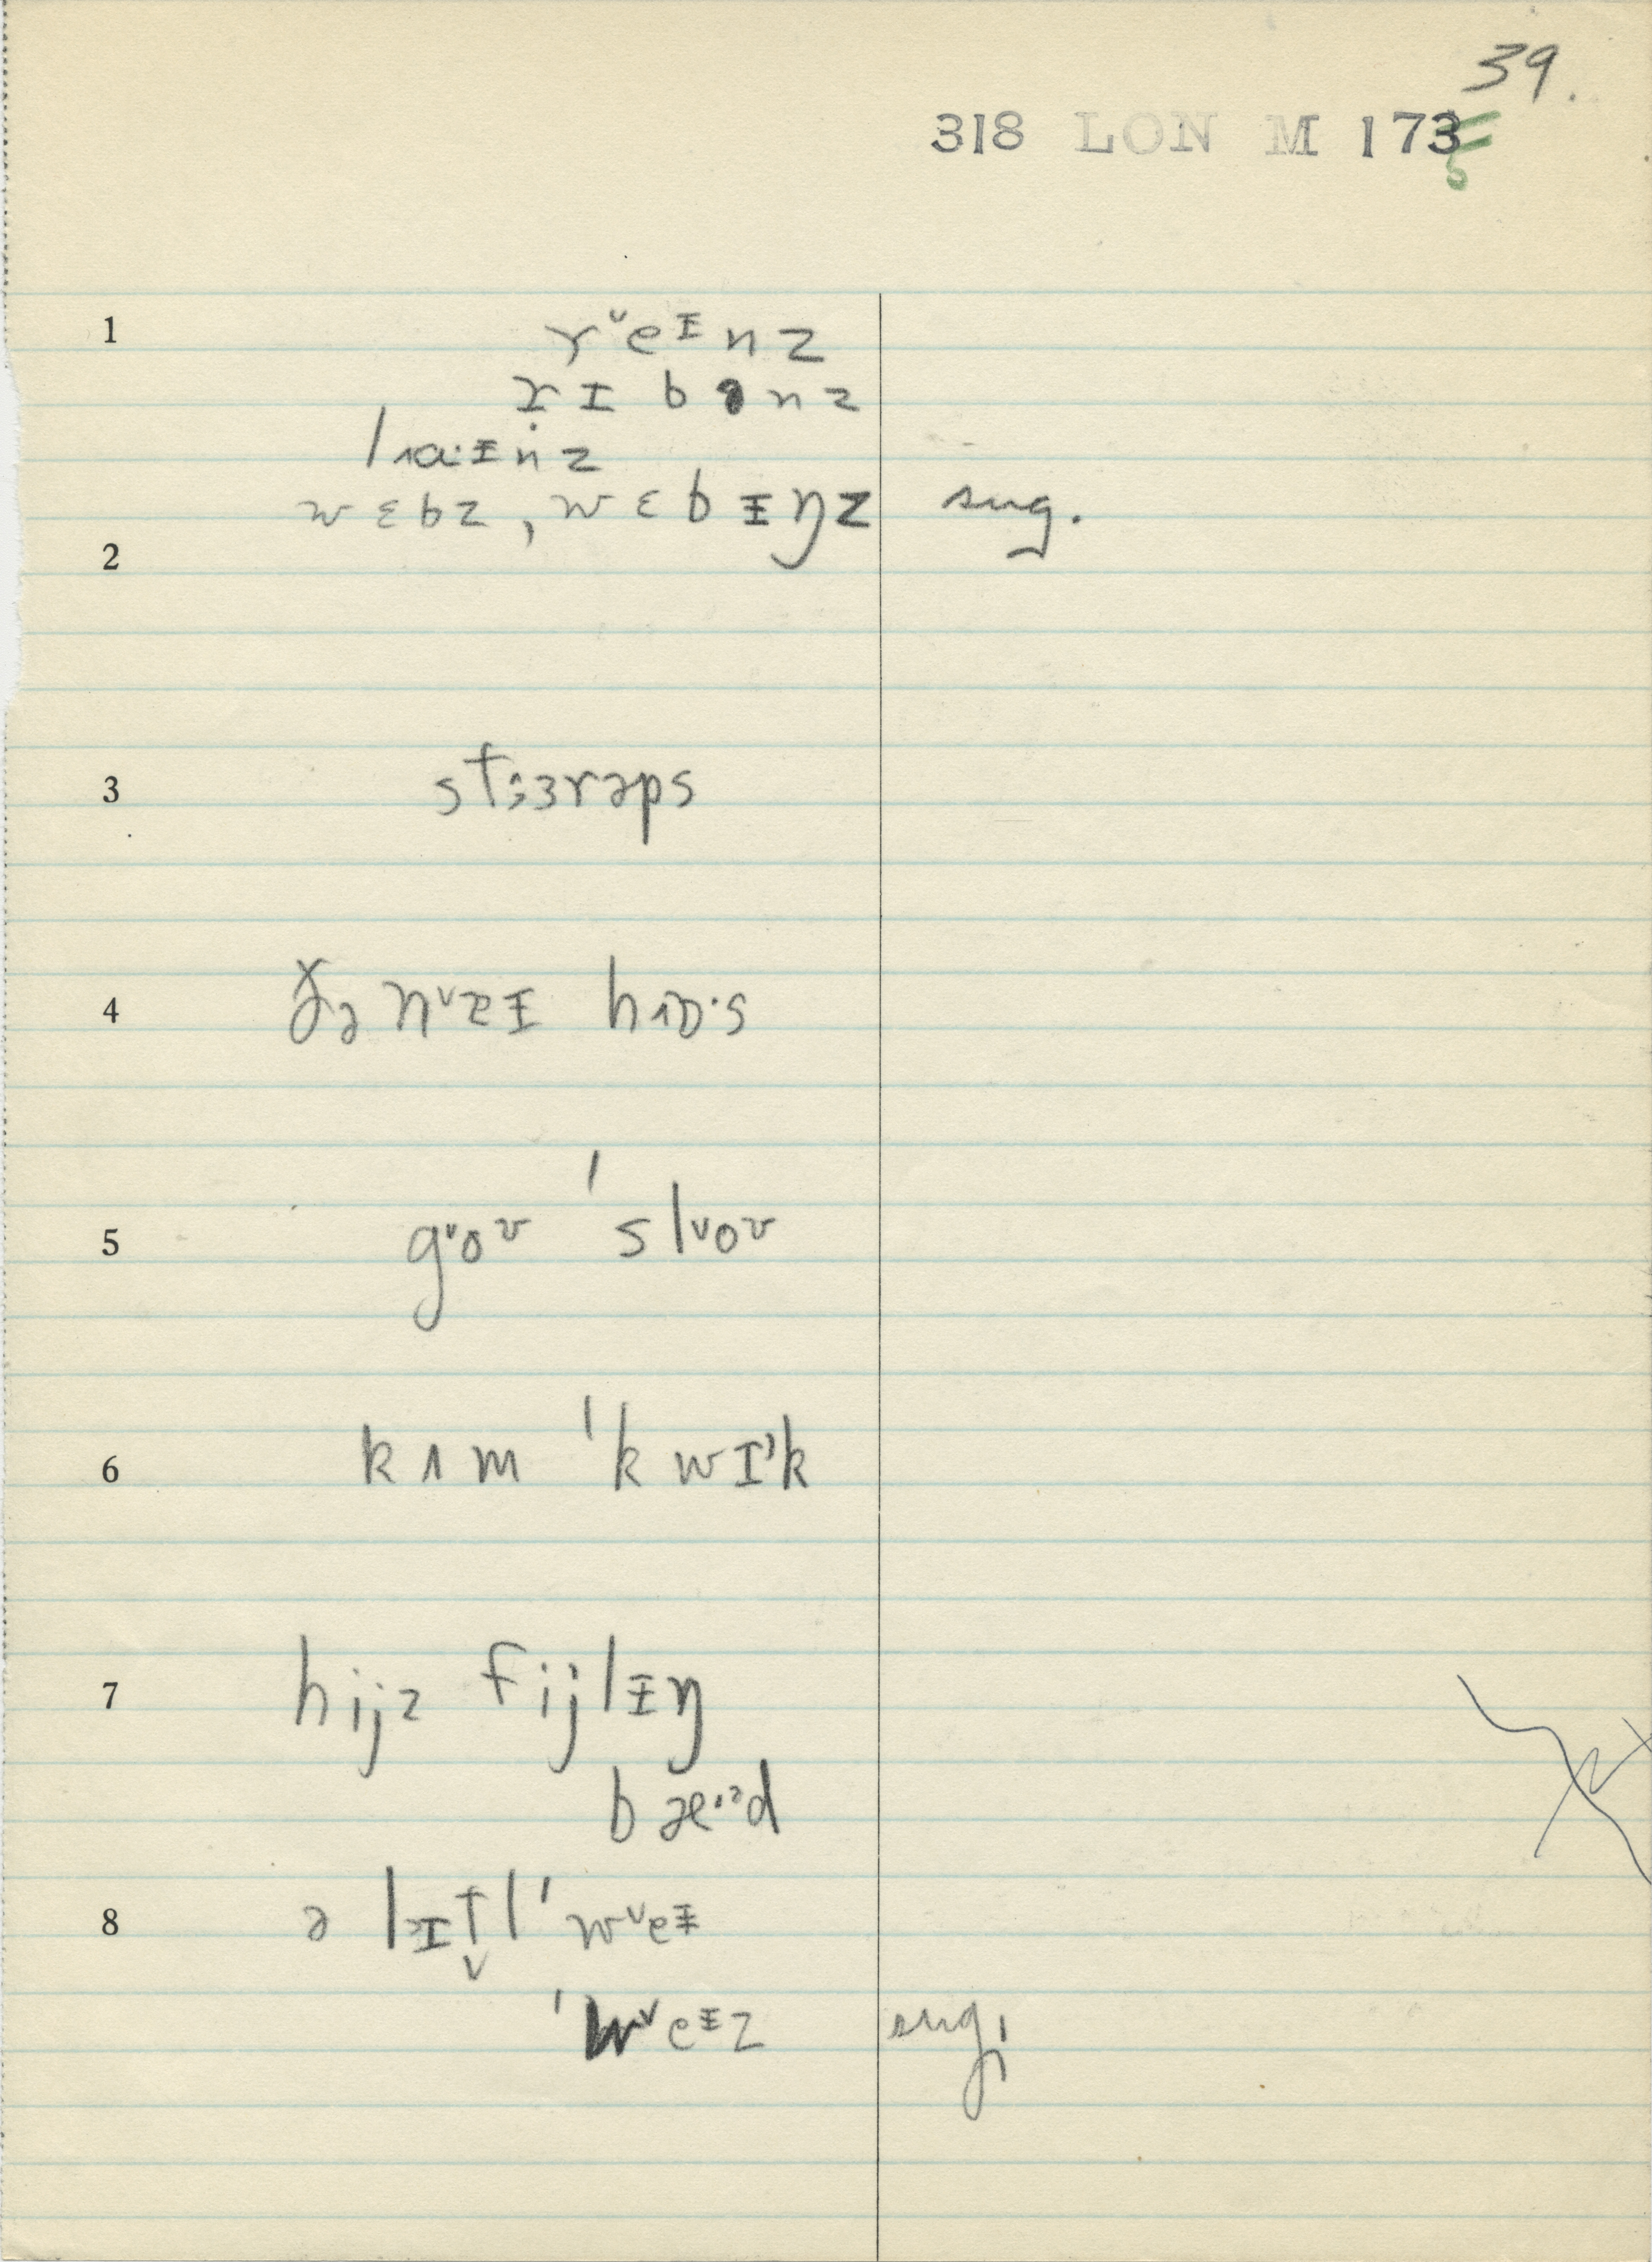 39.
318 LON M 173
1 rᵛeᵻnz
rɪbənz
lɑ·ᵻnz
wɛbz, wɛbᵻŋz sug.
2
3 stɜrəps
4 ðə nᵛeᵻ hɒ·s
5 gᵛoʊ 'slᵛoʊ
6 kʌm 'kwɪᵊk
7 hijz fijlᵻŋ
bæ·ᵊd
8 ə lɪt̬l 'wᵛeᵻ
'wᵛeᵻz sug.